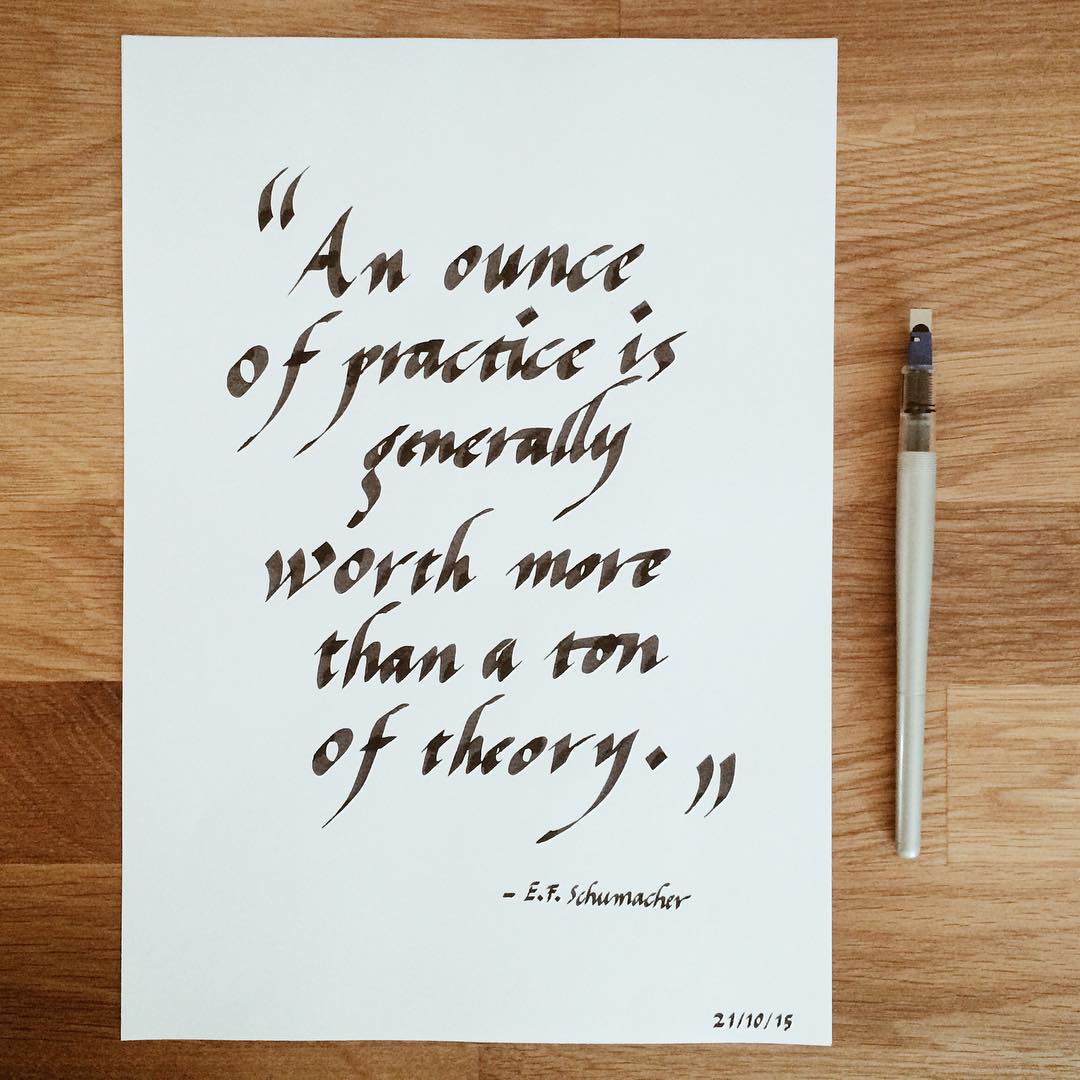 “An ounce
of practice is
generally
worth more
than a ton
of theory.”
- E.F. Schumacher
21/10/15